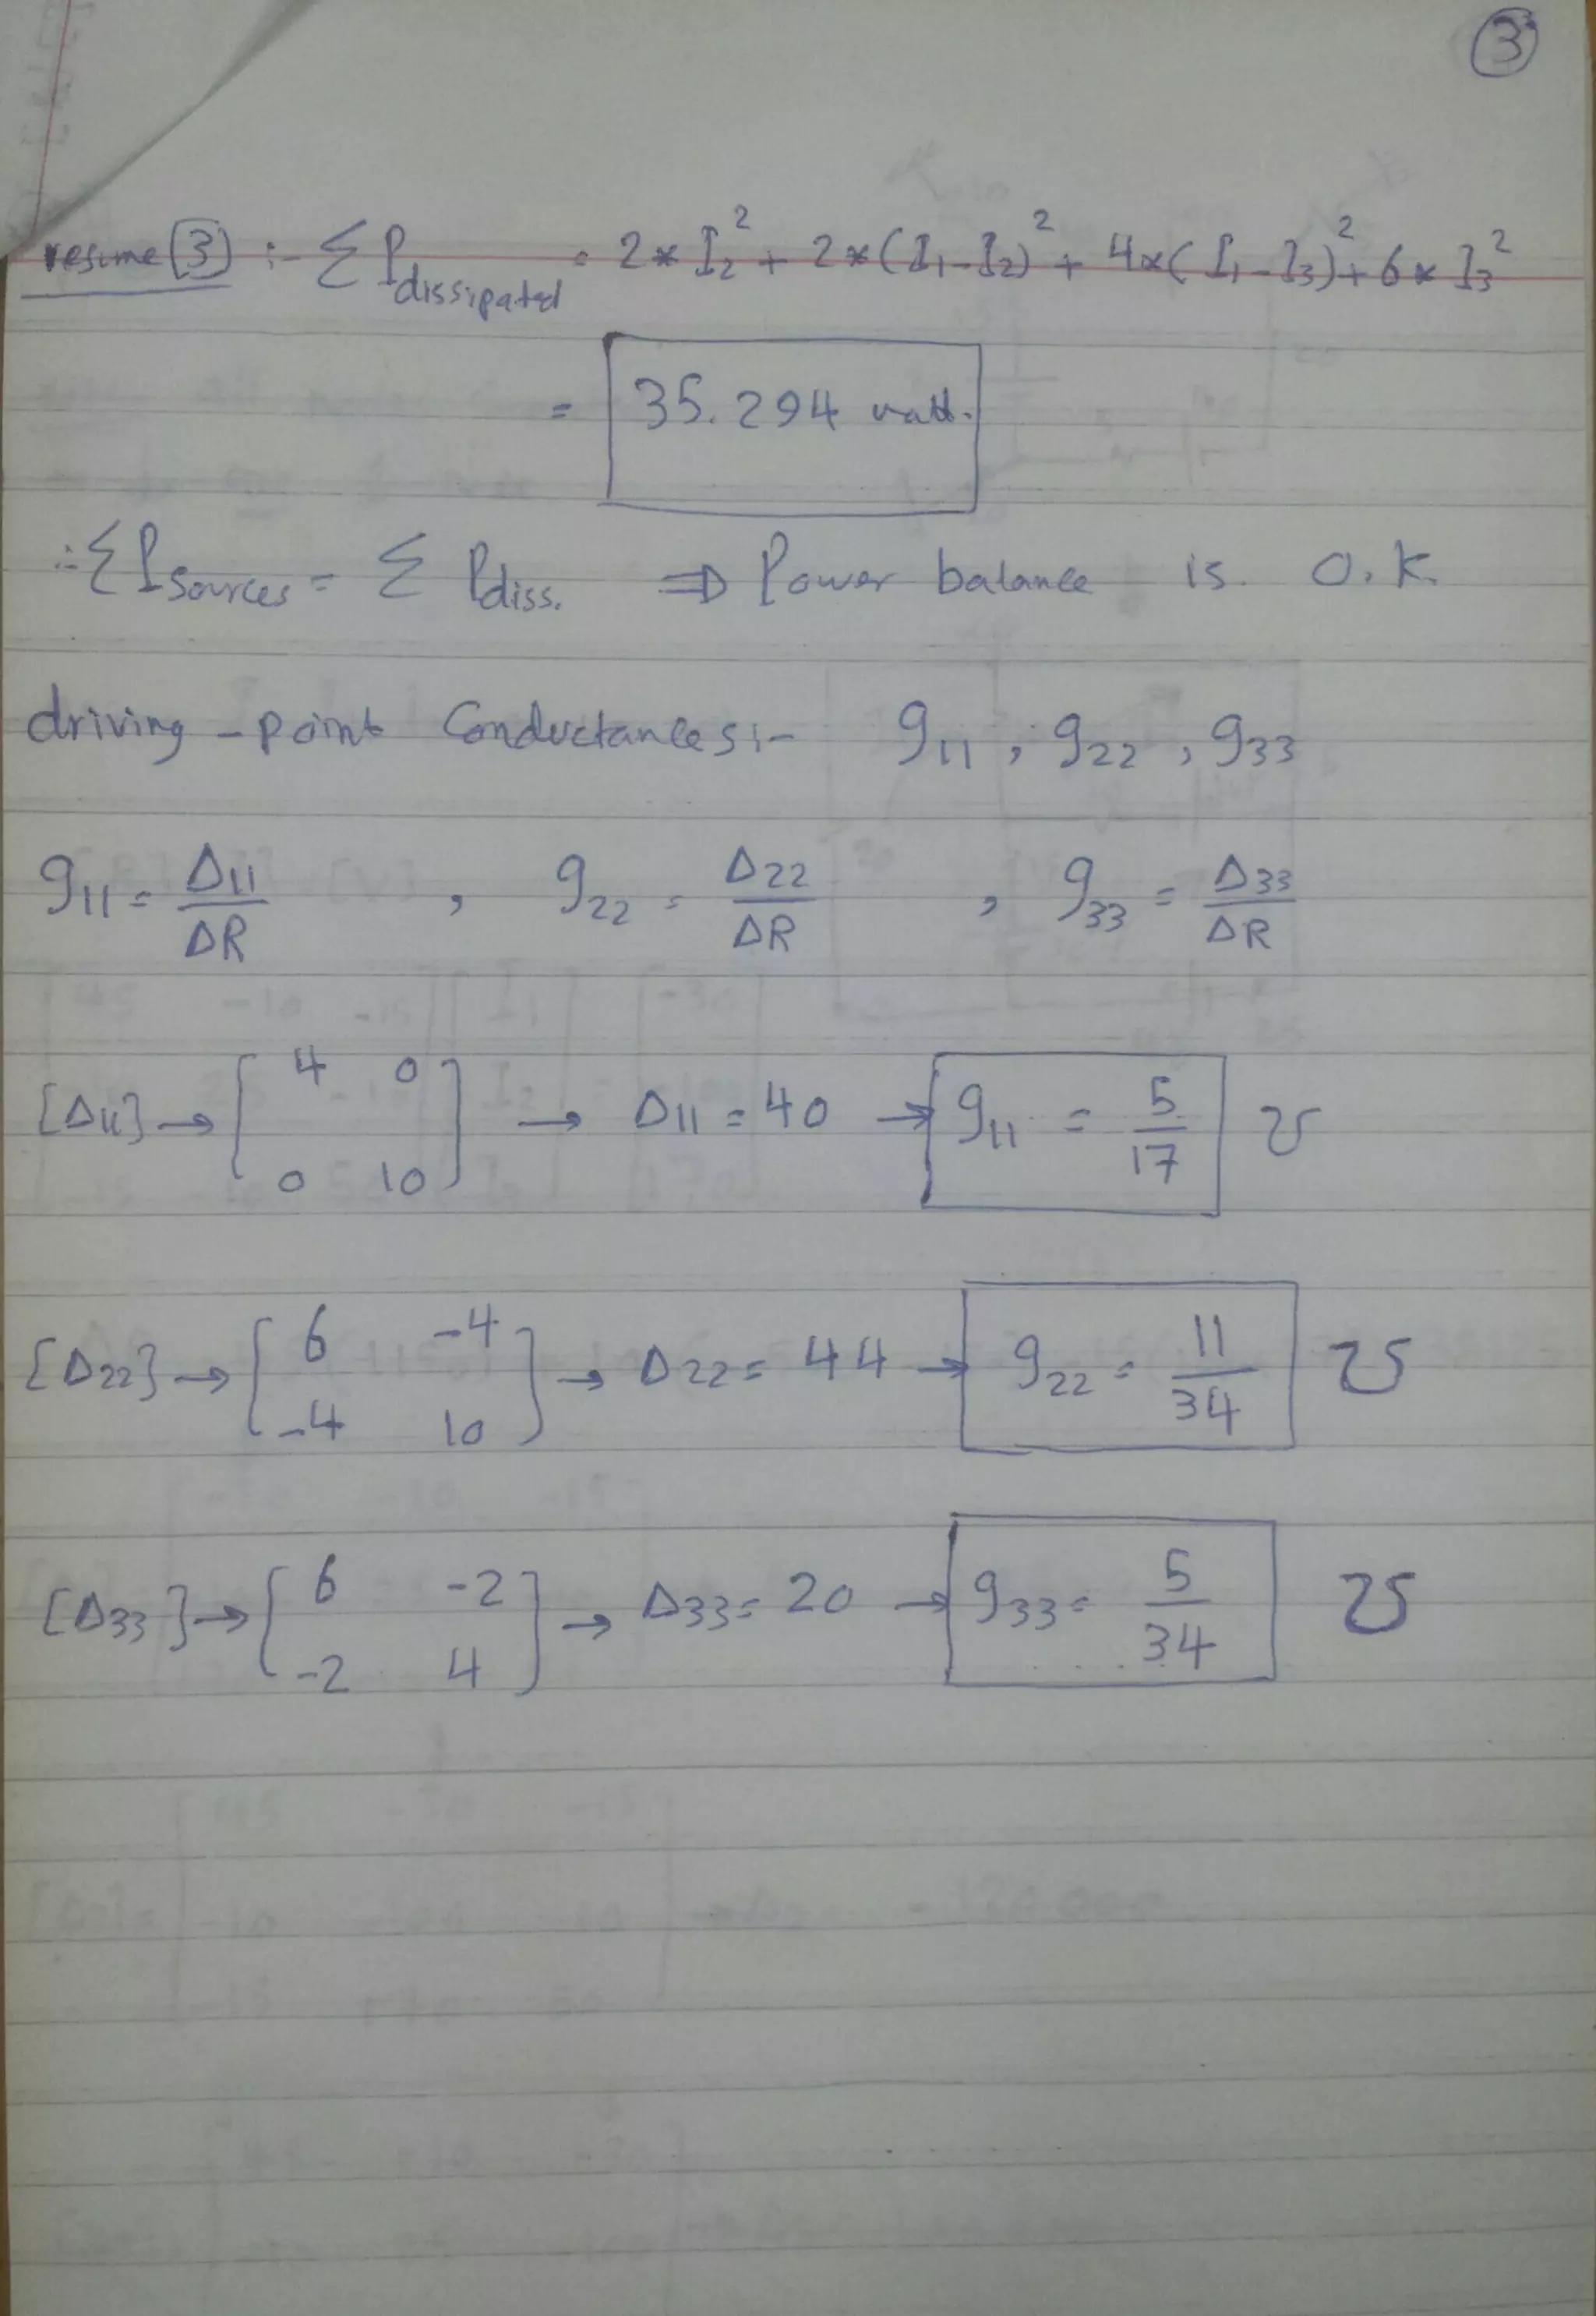 3
resume 3 :- Σ P dissipated = 2 * I₂² + 2 * (I₁ - I₂)² + 4 * (I₁ - I₃)² + 6 * I₃²
= 35.294 watt.
∴ Σ P sources = Σ P diss. ⇒ Power balance is O.K.
driving - point Conductances :- g₁₁ , g₂₂ , g₃₃
g₁₁ = Δ₁₁/ΔR , g₂₂ = Δ₂₂/ΔR , g₃₃ = Δ₃₃/ΔR
[Δ₁₁] → [4 0; 0 10] → Δ₁₁ = 40 → g₁₁ = 5/17 ℧
[Δ₂₂] → [6 -4; -4 10] → Δ₂₂ = 44 → g₂₂ = 11/34 ℧
[Δ₃₃] → [6 -2; -2 4] → Δ₃₃ = 20 → g₃₃ = 5/34 ℧